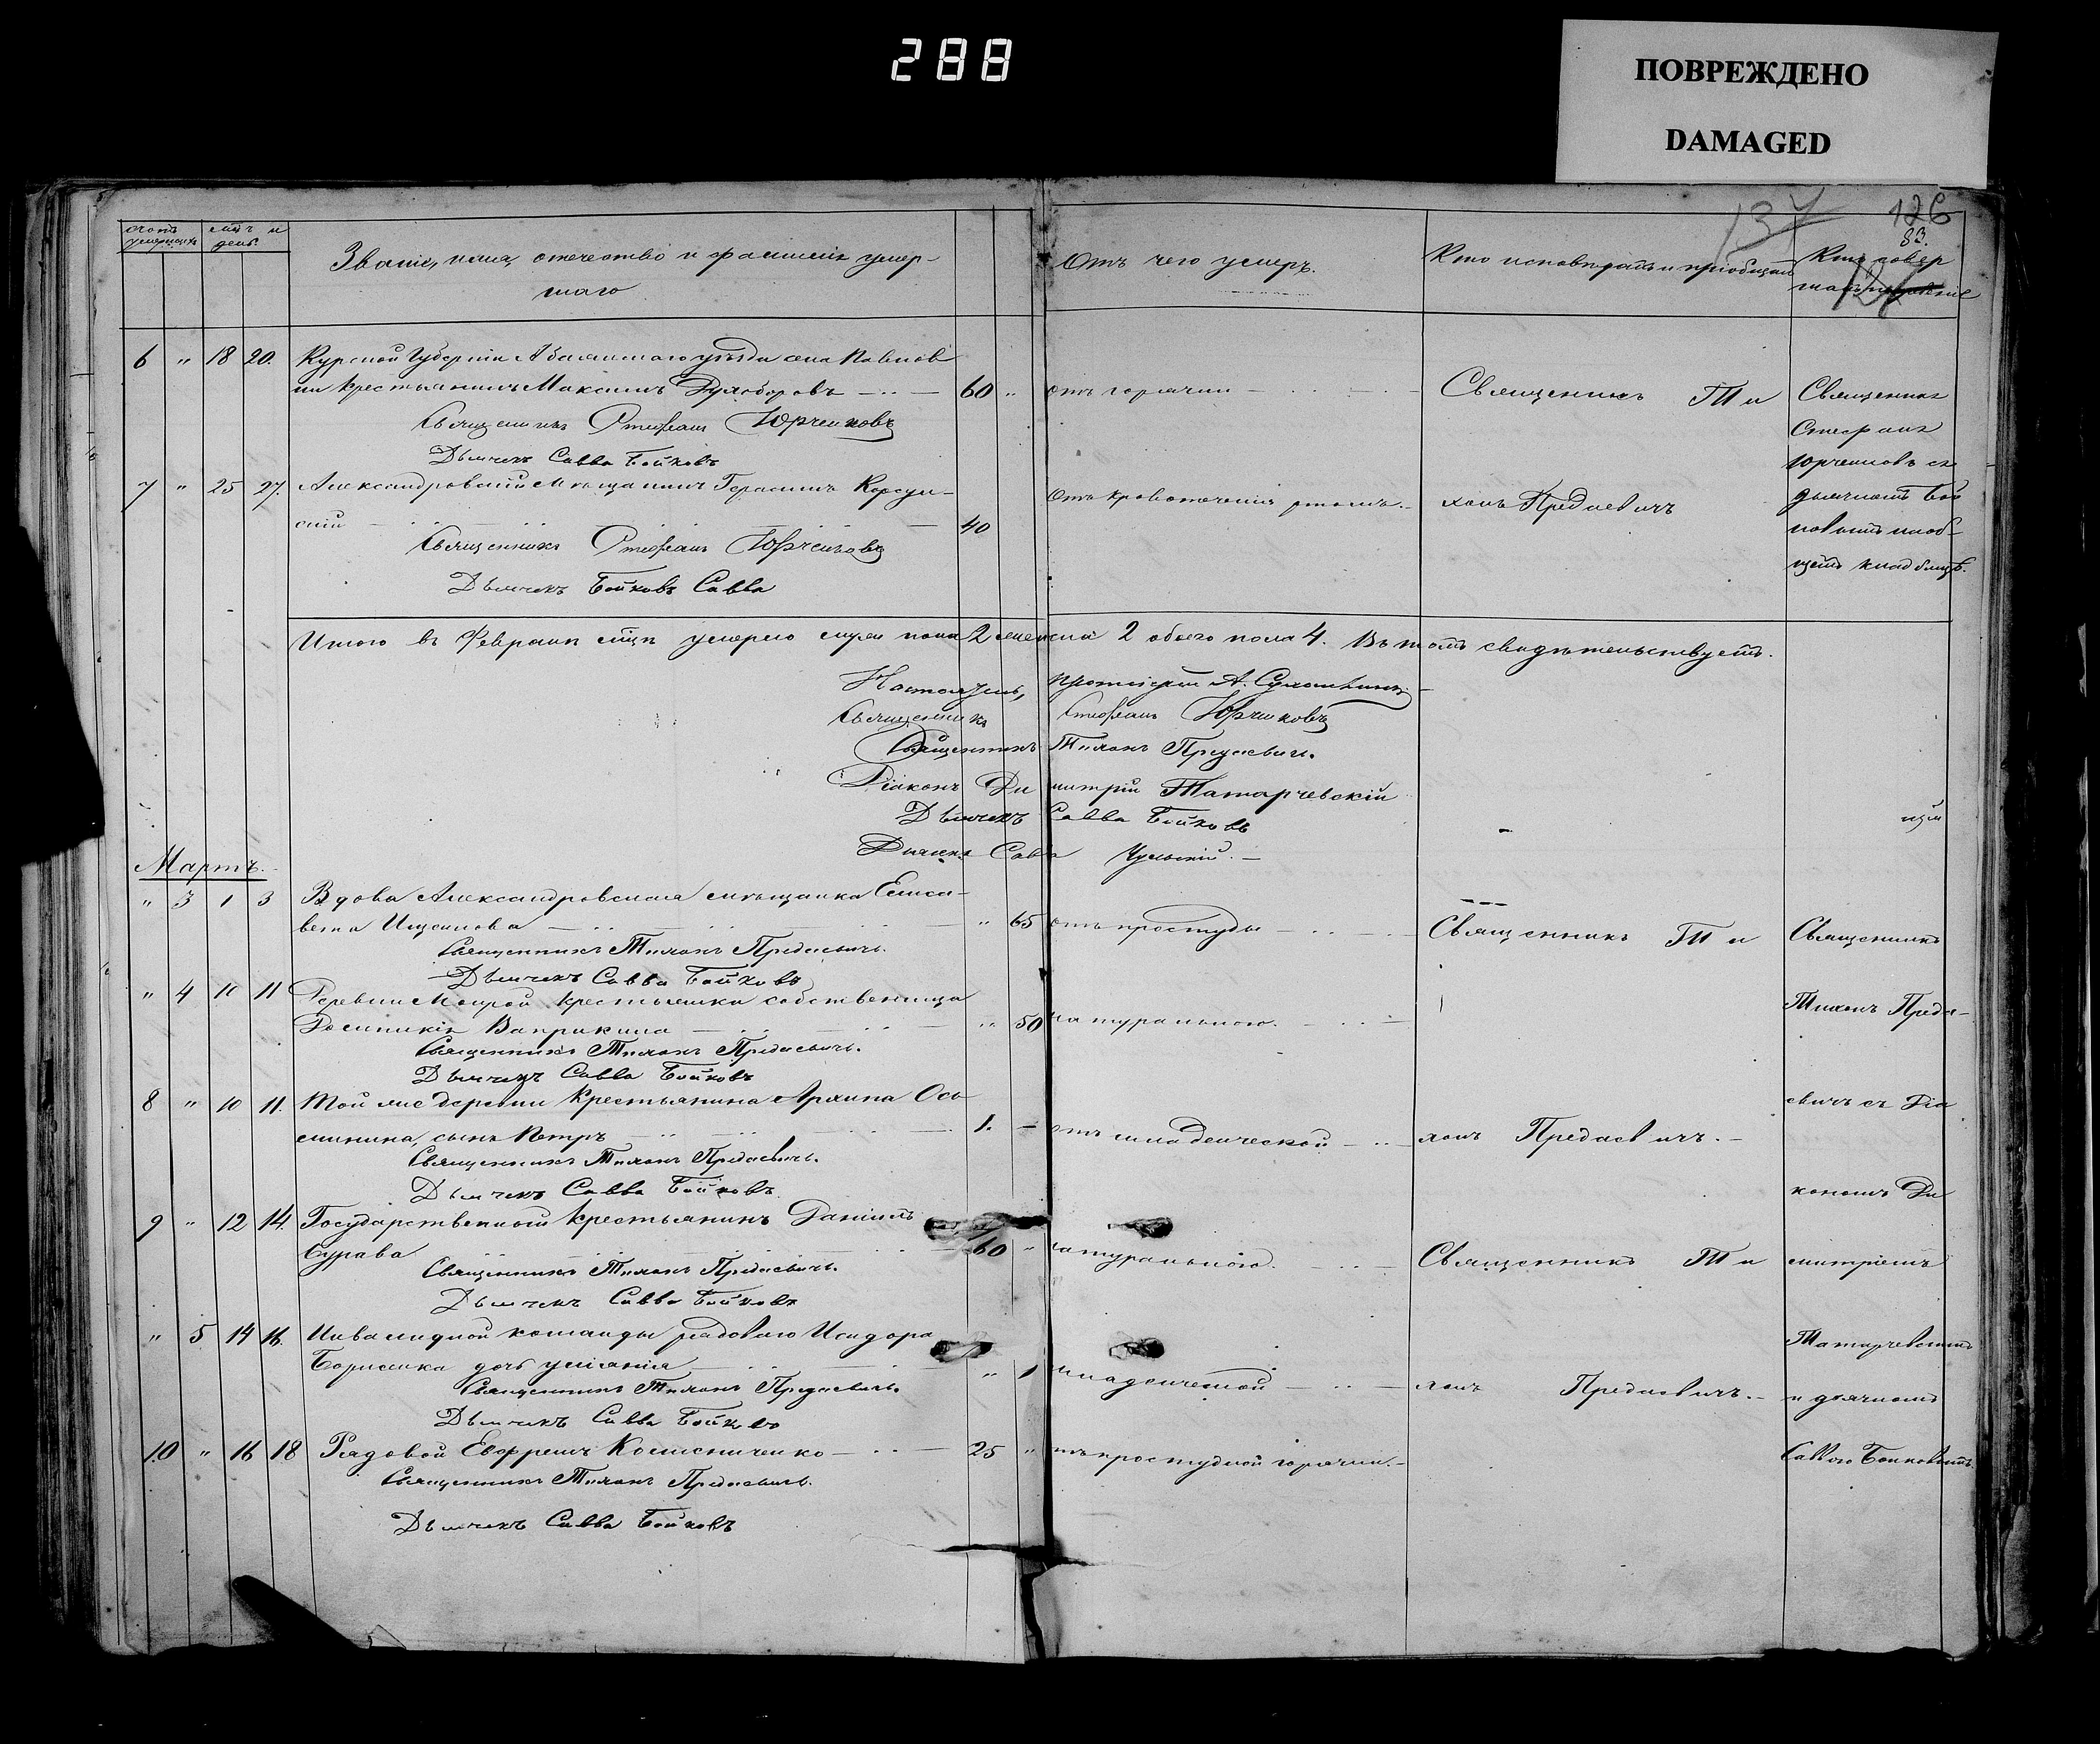 288
ПОВРЕЖДЕНО
DAMAGED
137
126
83.
счотъ умершихъ
мѣс. и день
Званіе, имя, отечество и фамилія умер-
шаго
Отъ чего умеръ.
Кто исповѣдалъ и пріобщалъ
Кто совер
шалъ погребеніе
6 " 18 20. Курской Губерніи уѣзда села
крестьянинъ Максимъ 60 " отъ горячки Священникъ Ти Священникъ
Священникъ Стефанъ Юрченковъ Стефанъ
Дьячекъ Савва Бойковъ Юрченковъ съ
7 " 25 27. Александровскій Мѣщанинъ Герасимъ Корсун- отъ кровотеченія ртомъ. хонъ Предаевичъ дьячкомъ Бой
скій 40 ковымъ на об-
Священникъ Стефанъ Юрченковъ щемъ кладбищѣ.
Дьячекъ Бойковъ Савва
Итого въ Февралѣ мѣсяцѣ умерло муж. пола 2 женска 2 обоего пола 4. Въ томъ свидѣтельствуемъ.
Настоятель, протоіерей А.
Священникъ Стефанъ Юрченковъ
Священникъ Тихонъ Предаевичъ.
Діаконъ Димитрій Татарчевскій
Дьячекъ Савва Бойковъ
Дьячекъ Савва
Мартъ.
" 3 1 3 Вдова Александровская мѣщанка Елиса-
вета Ищенкова " 65 отъ простуды Священникъ Ти Священникъ
Священникъ Тихонъ Предаевичъ.
Дьячекъ Савва Бойковъ
" 4 10 11 Деревни Мокрой крестьянка собственница Тихонъ Преда-
Домникія Ваприкина " 50 натуральною.
Священникъ Тихонъ Предаевичъ.
Дьячекъ Савва Бойковъ
8 " 10 11. Той же деревни крестьянина Архипа Ось евичъ съ Діа
минина, сынъ Петръ 1. - отъ младенческой хонъ Предаевичъ.
Священникъ Тихонъ Предаевичъ.
Дьячекъ Савва Бойковъ. кономъ Ди
9 " 12 14. Государственный крестьянинъ Даніилъ
Бурава 60 " натуральною. Священникъ Ти митріемъ
Священникъ Тихонъ Предаевичъ.
Дьячекъ Савва Бойковъ
" 5 14 16. Инвалидной команды рядового Исидора Татарчевскимъ
Борисенка дочь Уліанія " 1 младенческой хонъ Предаевичъ. и дьячкомъ
Священникъ Тихонъ Предаевичъ.
Дьячекъ Савва Бойковъ
10 " 16 18 Рядовой Евфремъ Колесниченко 25 " отъ простудной горячки. Саввою Бойковымъ.
Священникъ Тихонъ Предаевичъ.
Дьячекъ Савва Бойковъ